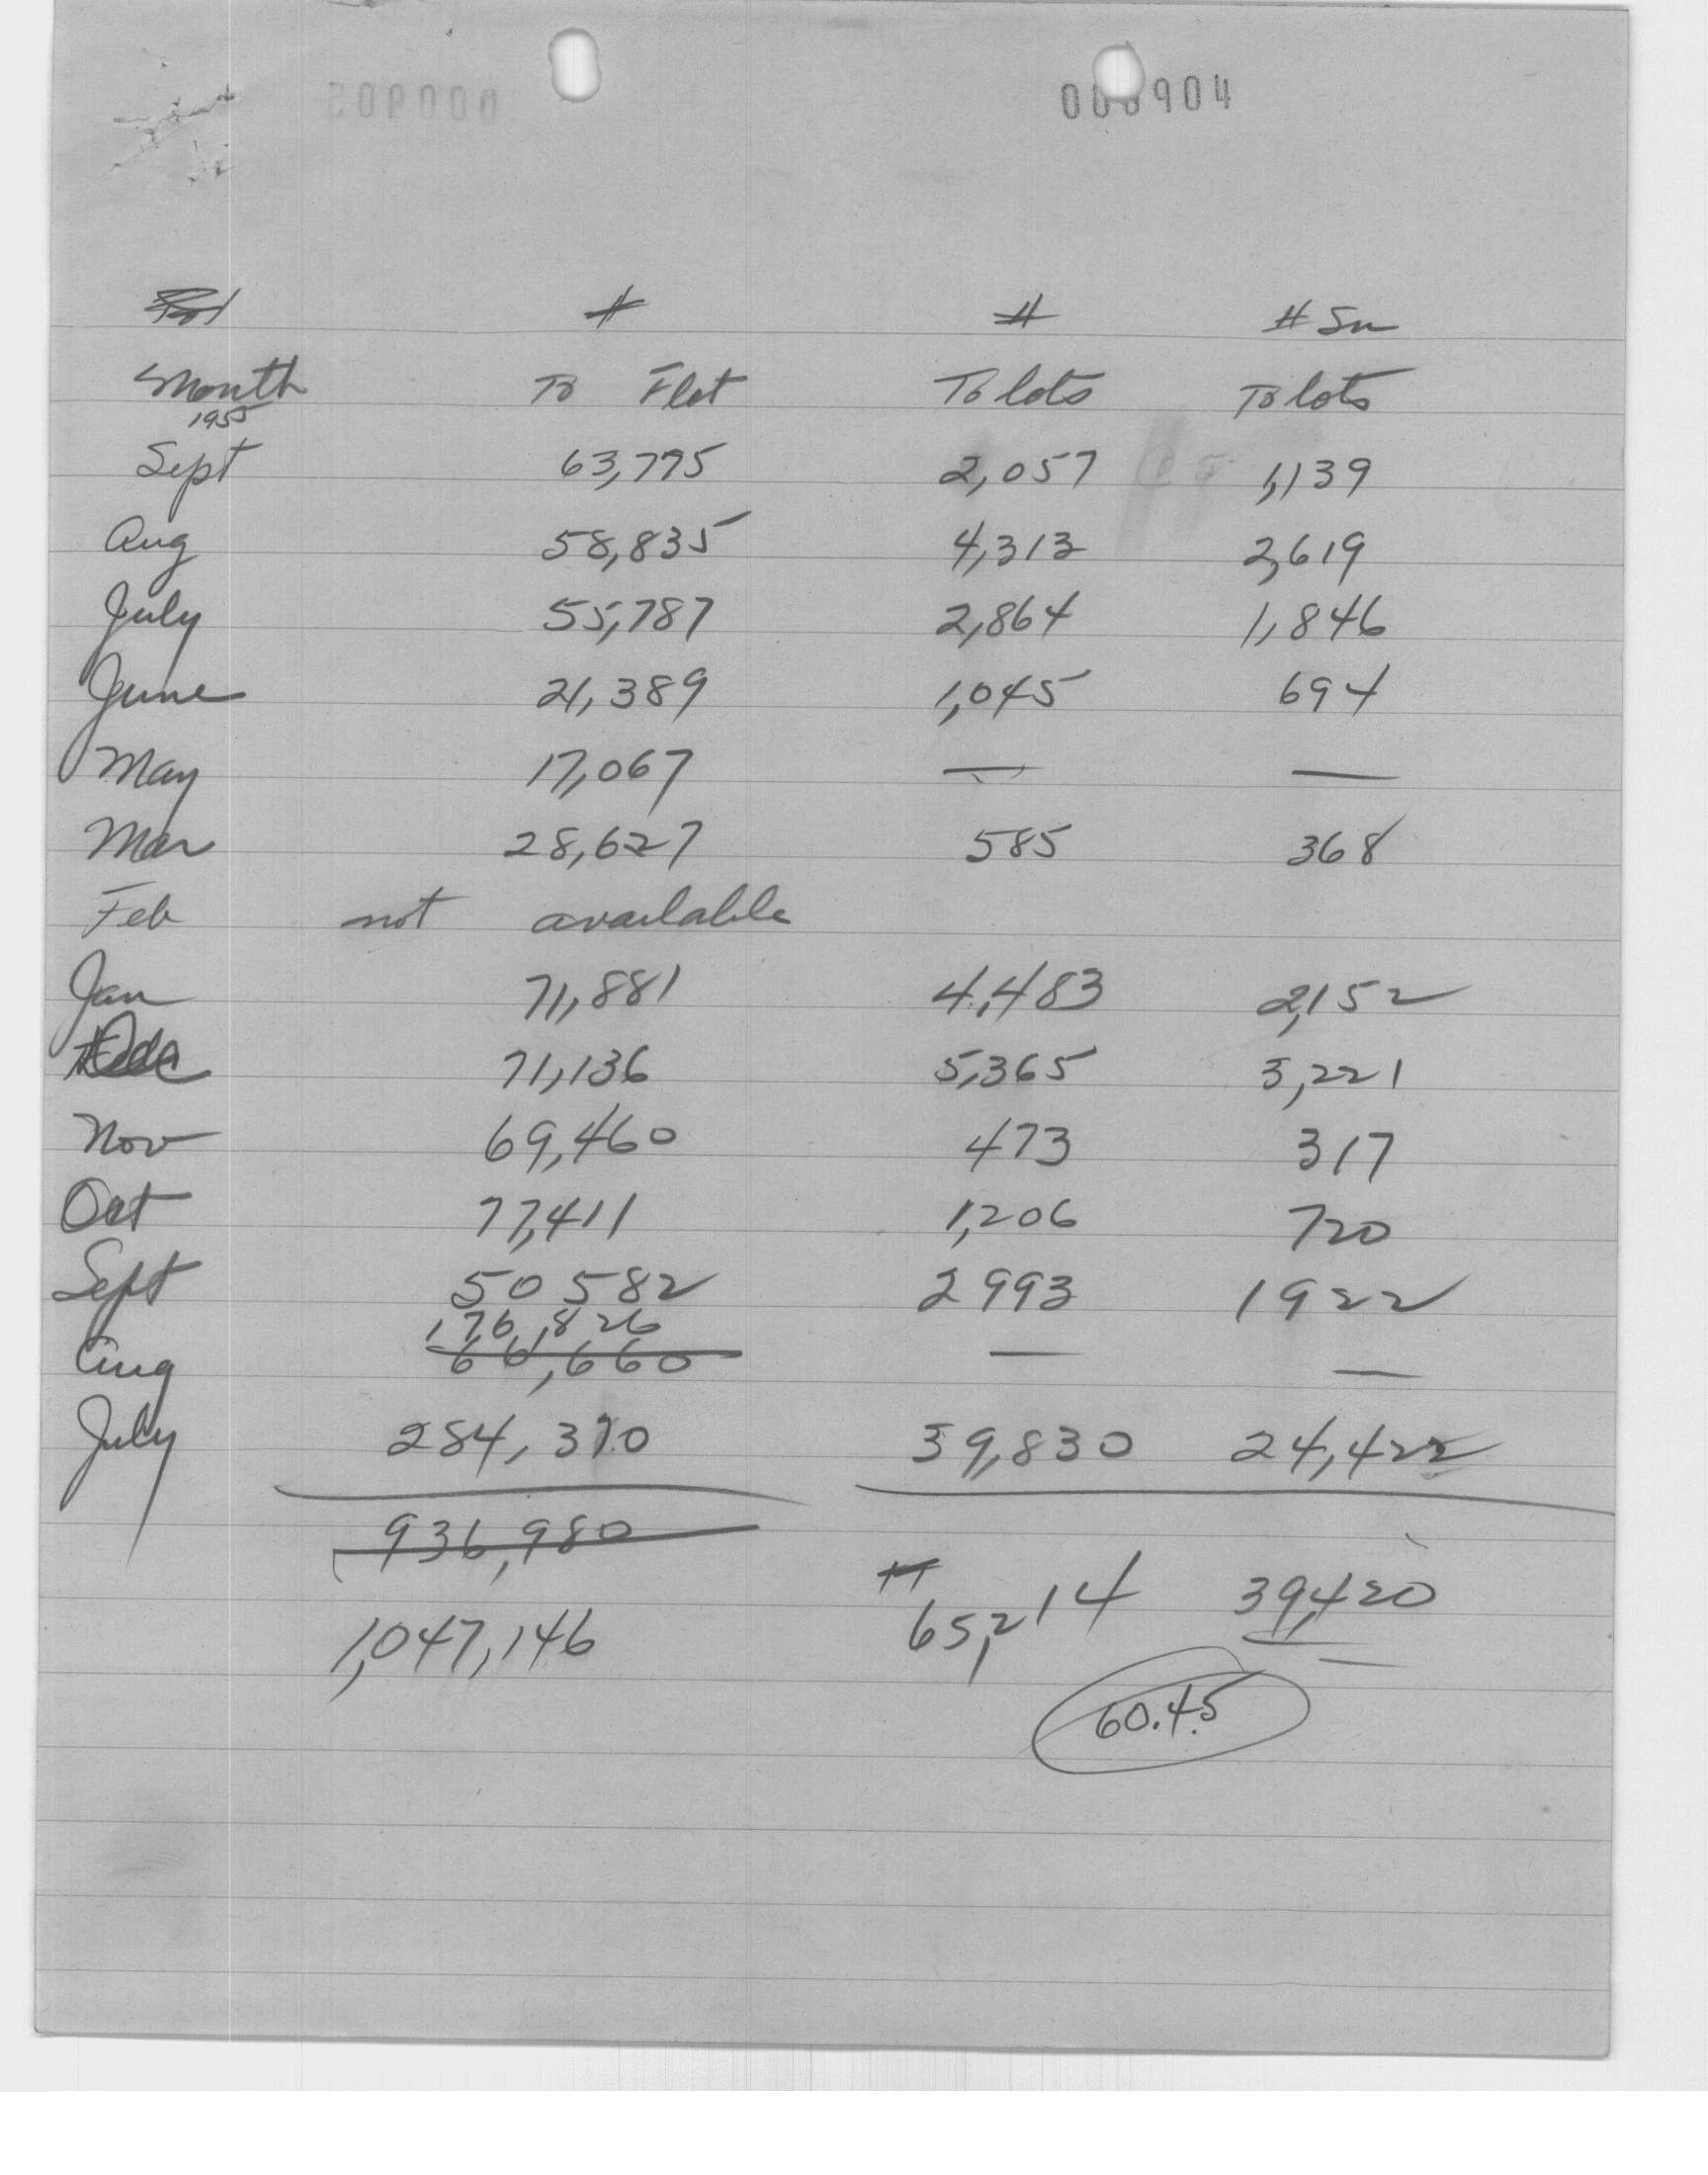 000902
000904
# # # Sn
Month To Flot To lots To lots
1955
Sept 63,775 2,057 1,139
Aug 58,835 4,313 2,619
July 55,787 2,864 1,846
June 21,389 1,045 694
May 17,067 — —
Mar 28,627 585 368
Feb not available
Jan 71,881 4,483 2,152
Dec 71,136 5,365 3,221
Nov 69,460 473 317
Oct 77,411 1,206 720
Sept 50 582 2 993 1 922
176,826
Aug 66,660 — —
July 284,370 39,830 24,422
936,980
1,047,146 65,214 39,420
60.45